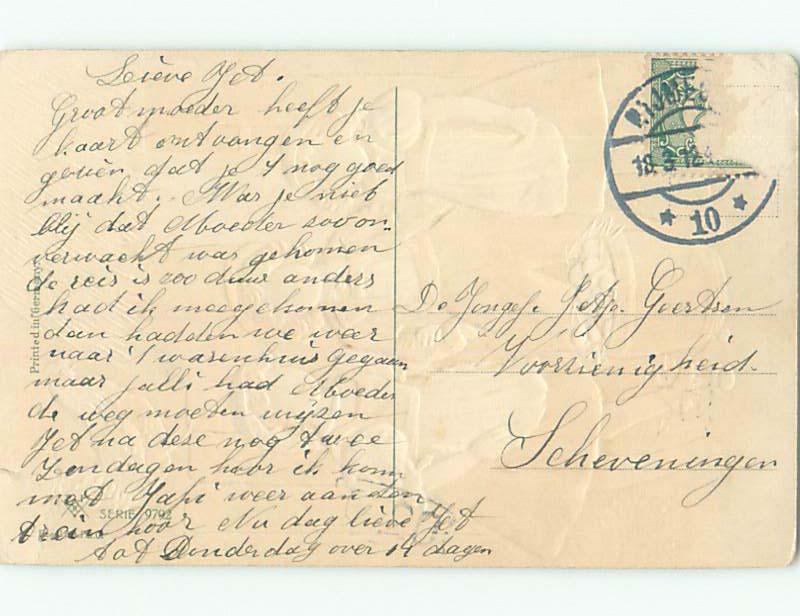 Lieve Jet.
Groot moeder heeft je
kaart ontvangen en
dat je 't nog goed
maakt. Was je niet
blij dat Moeder zoo on-
verwacht was gekomen
de reis is zoo duur anders
had ik meegekomen
dan hadden we weer
naar 't warenhuis gegaan
maar jalli had Moeder
de weg moeten wijzen
Jet na dese nog twee
Zondagen hoor ik kom
met Papi weer aan den
trein hoor Nu dag lieve Jet
tot Donderdag over 14 dagen
Printed in Germany
SERIE 9792
18.3.12
10
De Jongej. Goertsen
Voorzienigheid.
Scheveningen